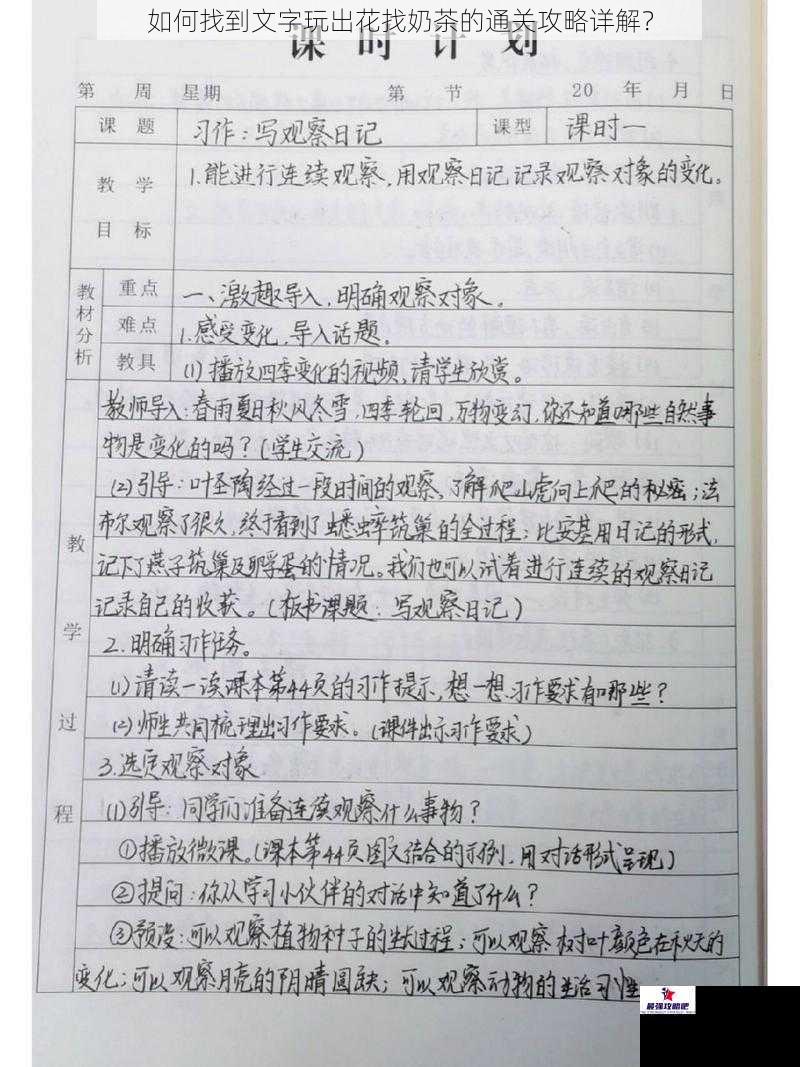 如何找到文字玩出花找奶茶的通关攻略详解？
课时计划
第 周 星期 第 节 20 年 月 日
课题 习作：写观察日记 课型 课时一
教学目标 1.能进行连续观察，用观察日记记录观察对象的变化。
教材分析
重点 一、激趣导入，明确观察对象。
难点 1.感受变化，导入话题。
教具 (1)播放四季变化的视频，请学生欣赏。
教学过程
教师导入：春雨夏日秋风冬雪，四季轮回，万物变幻，你还知道哪些自然事
物是变化的吗？(学生交流)
(2)引导：叶圣陶经过一段时间的观察，了解爬山虎向上爬的秘密；法
布尔观察了很久，终于看到了蟋蟀筑巢的全过程；比安基用日记的形式，
记下了燕子筑巢及孵蛋的情况。我们也可以试着进行连续的观察日记
记录自己的收获。(板书课题：写观察日记)
2.明确习作任务。
(1)请读一读课本第44页的习作提示，想一想习作要求有哪些？
(2)师生共同梳理出习作要求。(课件出示习作要求)
3.选定观察对象
(1)引导：同学们准备连续观察什么事物？
①播放微课。(课本第44页图文结合的示例，用对话形式呈现)
②提问：你从学习小伙伴的对话中知道了什么？
③预设：可以观察植物种子的生长过程；可以观察树叶颜色在秋天的
变化；可以观察月亮的阴晴圆缺；可以观察动物的生活习性
最强攻略吧